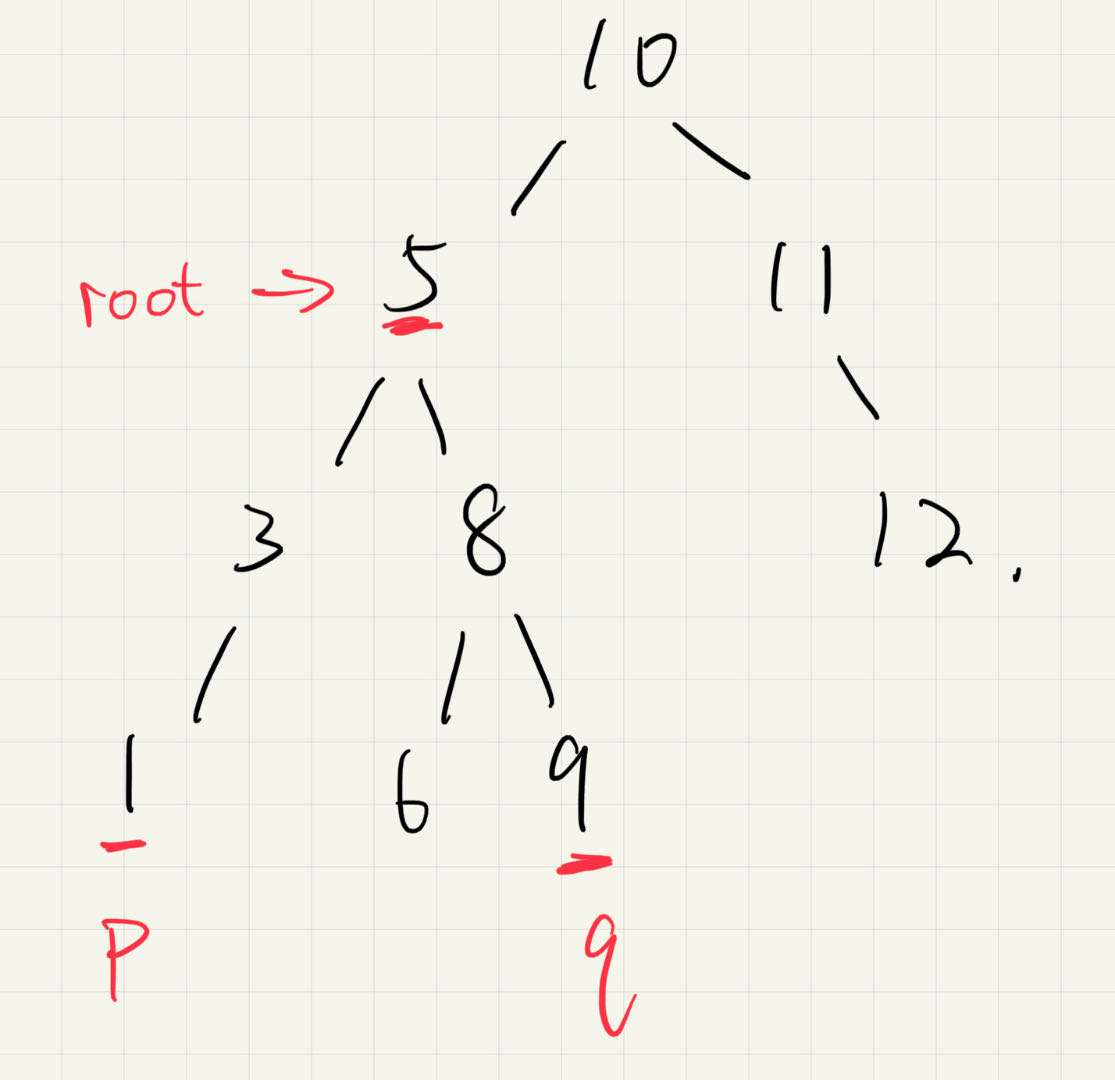 10
root → 5 11
3 8 12.
1 6 9
p q